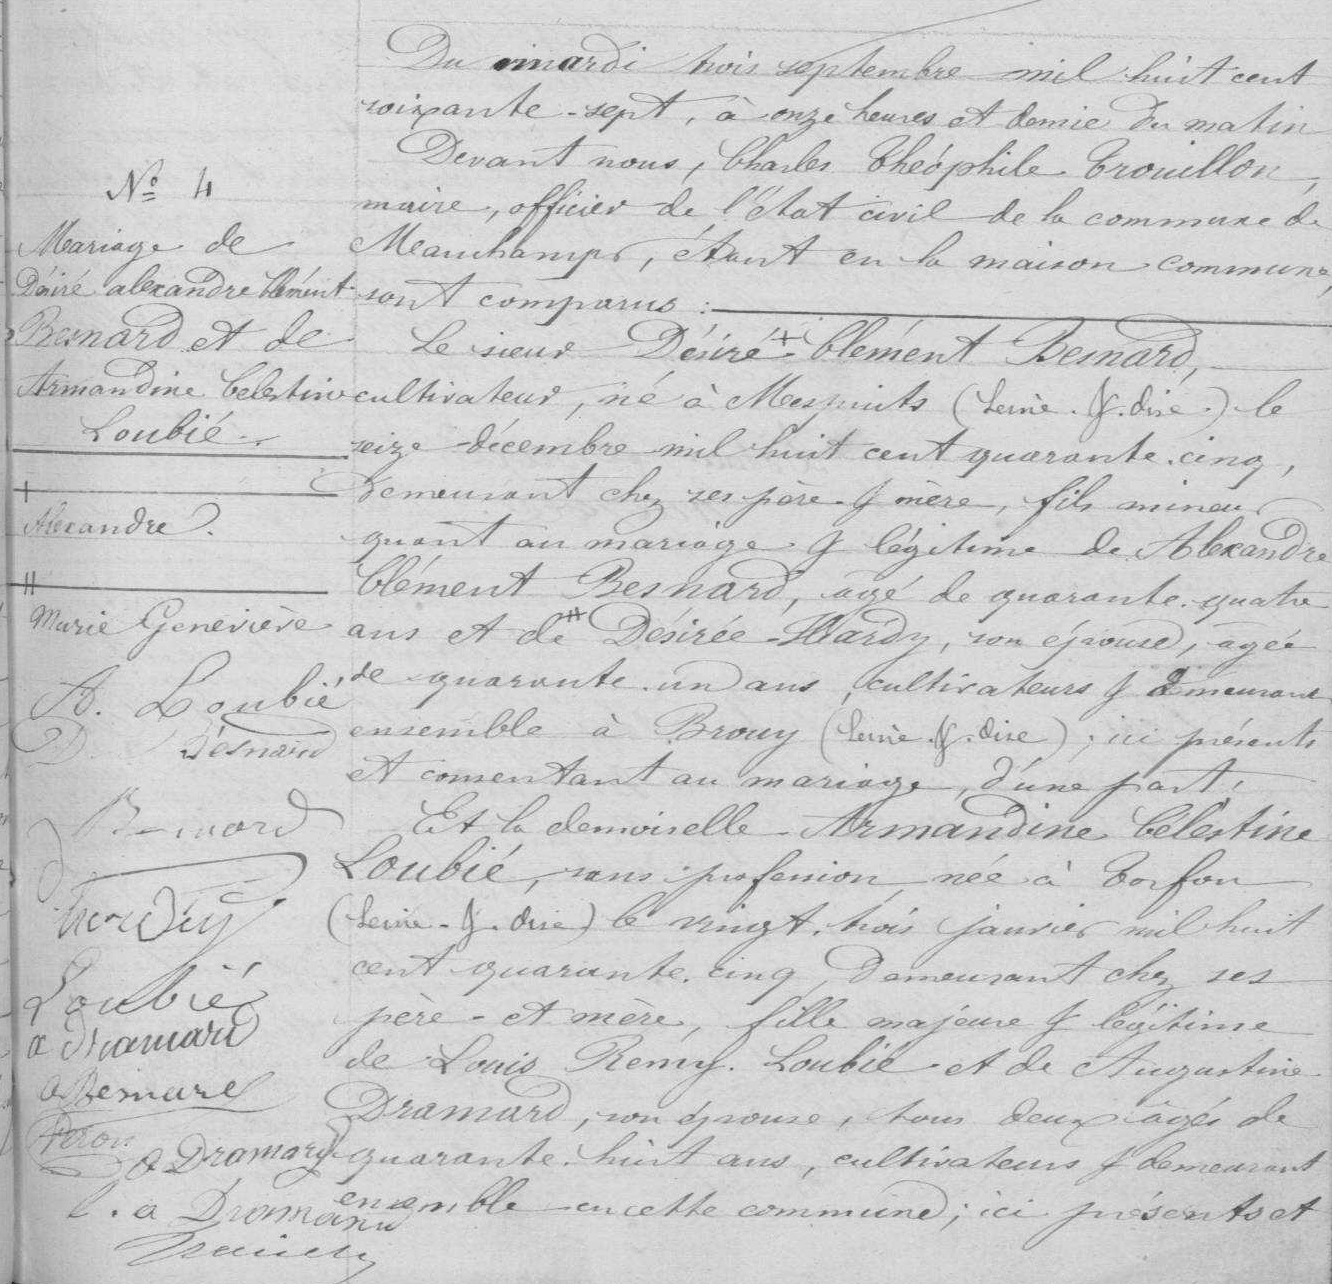 Du mardi trois septembre mil huit cent
soixante-sept, à onze heures et demie du matin
Devant nous, Charles Théophile Trouillon,
maire, officier de l'état civil de la commune de
Mauchamps, étant en la maison commune,
sont comparus :
Le sieur Désiré + Clément Besnard,
cultivateur, né à Mespuits (Seine-&-Oise) le
seize décembre mil huit cent quarante-cinq,
Demeurant chez ses père & mère, fils mineur
quant au mariage & légitime de Alexandre
Clément Besnard, agé de quarante-quatre
ans et de # Désirée Hardy, son épouse, agée
de quarante-un ans, cultivateurs & demeurant
ensemble à Brouy (Seine-&-Oise); ici présents
et consentant au mariage, d'une part;
Et la demoiselle Armandine Célestine
Loubié, sans profession née à Torfou
(Seine-&-Oise) le vingt-trois janvier mil huit
cent quarante-cinq, Demeurant chez ses
père et mère, fille majeure & légitime
de Louis Rémy Loubié et de Augustine
Dramard, son épouse, tous deux âgés de
quarante-huit ans, cultivateurs & demeurant
ensemble en cette commune; ici présents et
No 4
Mariage de
Désiré alexandre Clément
Besnard et de
Armandine Celestine
Loubié
+
Alexandre.
#
Marie Geneviève
A. Loubié
D. Besnard
Besnard
hardy
Loubié
a Dramard
a Besnard
a Dramard
l. a Dramard